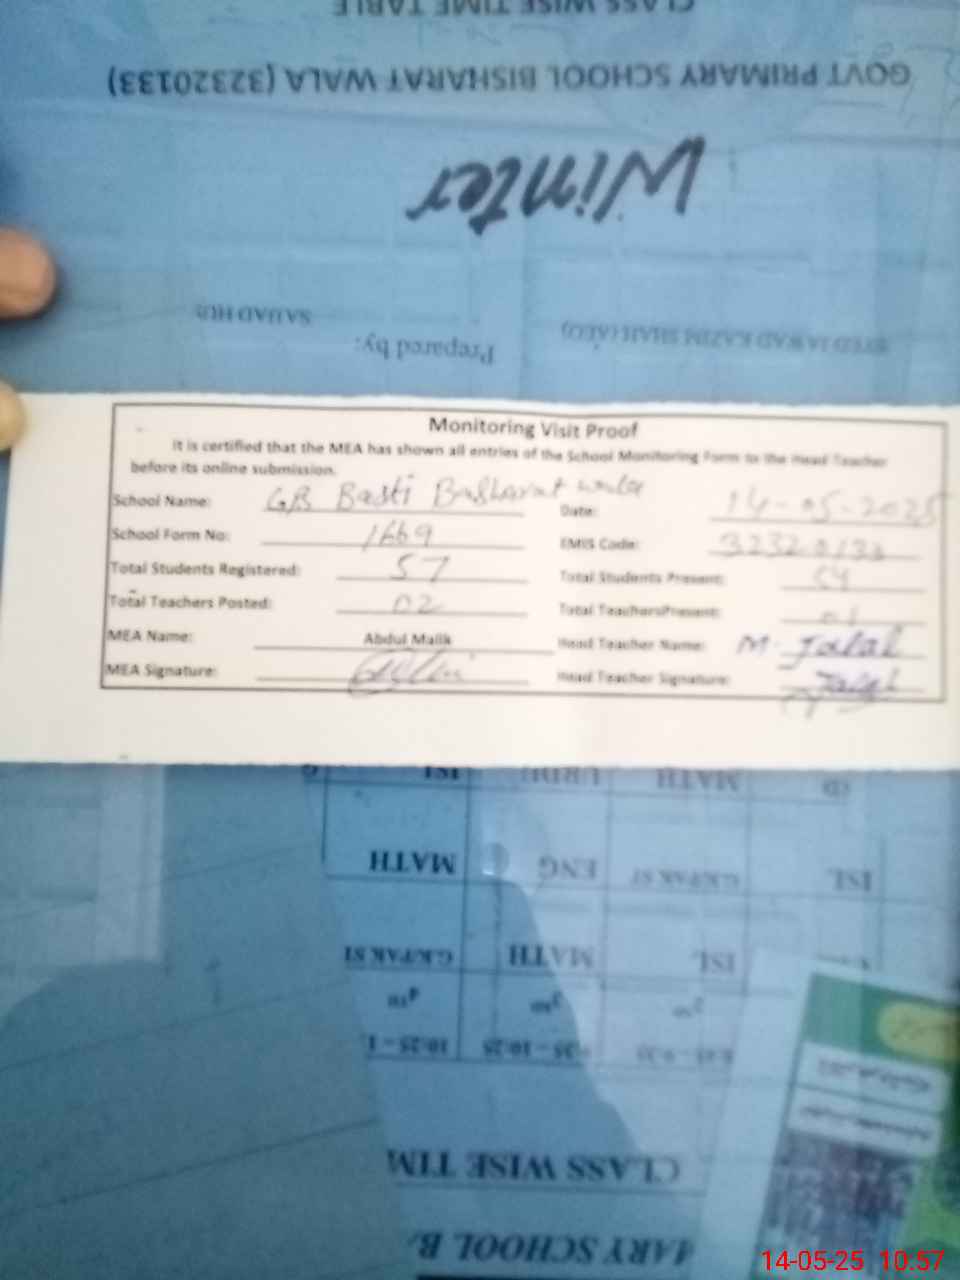 CLASS WISE TIME TABLE
GOVT PRIMARY SCHOOL BISHARAT WALA (32320133)
Winter
Prepared by:
SYED JAWAD KAZIM SHAH (AEO)
SAJJAD
Monitoring Visit Proof
It is certified that the MEA has shown all entries of the School Monitoring Form to the Head Teacher
before its online submission.
School Name: Basti Basharat wala Date: 14-05-2025
School Form No: 1669 EMIS Code: 32320133
Total Students Registered: 57 Total Students Present: 54
Total Teachers Posted: 02 Total TeachersPresent: 01
MEA Name: Abdul Malik Head Teacher Name: M. Jalal
MEA Signature: Head Teacher Signature: Jalal
ISL URDU MATH
MATH ENG G.K/PAK ST ISL
G.K/PAK ST MATH ISL
4TH 3RD 2ND
10:25 - 1 9:35 - 10:25 8:45 - 9:35
CLASS WISE TIM
MARY SCHOOL B
14-05-25 10:57